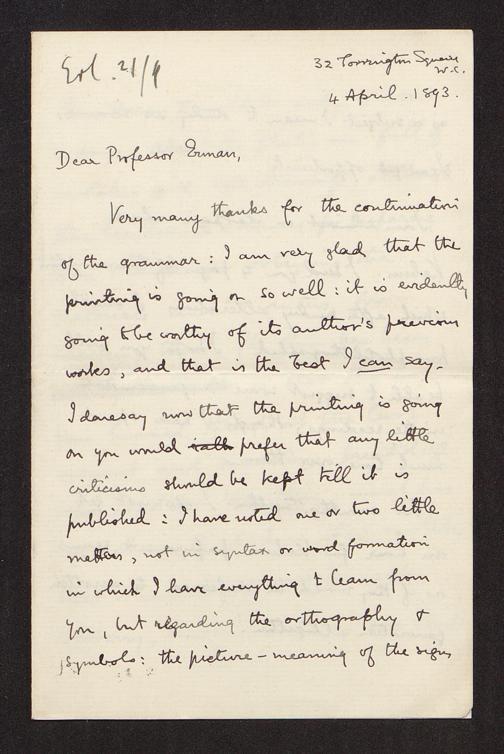 Erl. 21/4
32 Torrington Square
W.C.
4 April. 1893.
Dear Professor Erman,
Very many thanks for the continuation
of the grammar: I am very glad that the
printing is going on so well: it is evidently
going to be worthy of its author's previous
works, and that is the best I can say.
I daresay now that the printing is going
on you would rath prefer that any little
criticisms should be kept till it is
published: I have noted one or two little
matters, not in syntax or word formation
in which I have everything to learn from
you, but regarding the orthography &
symbols: the picture-meaning of the signs